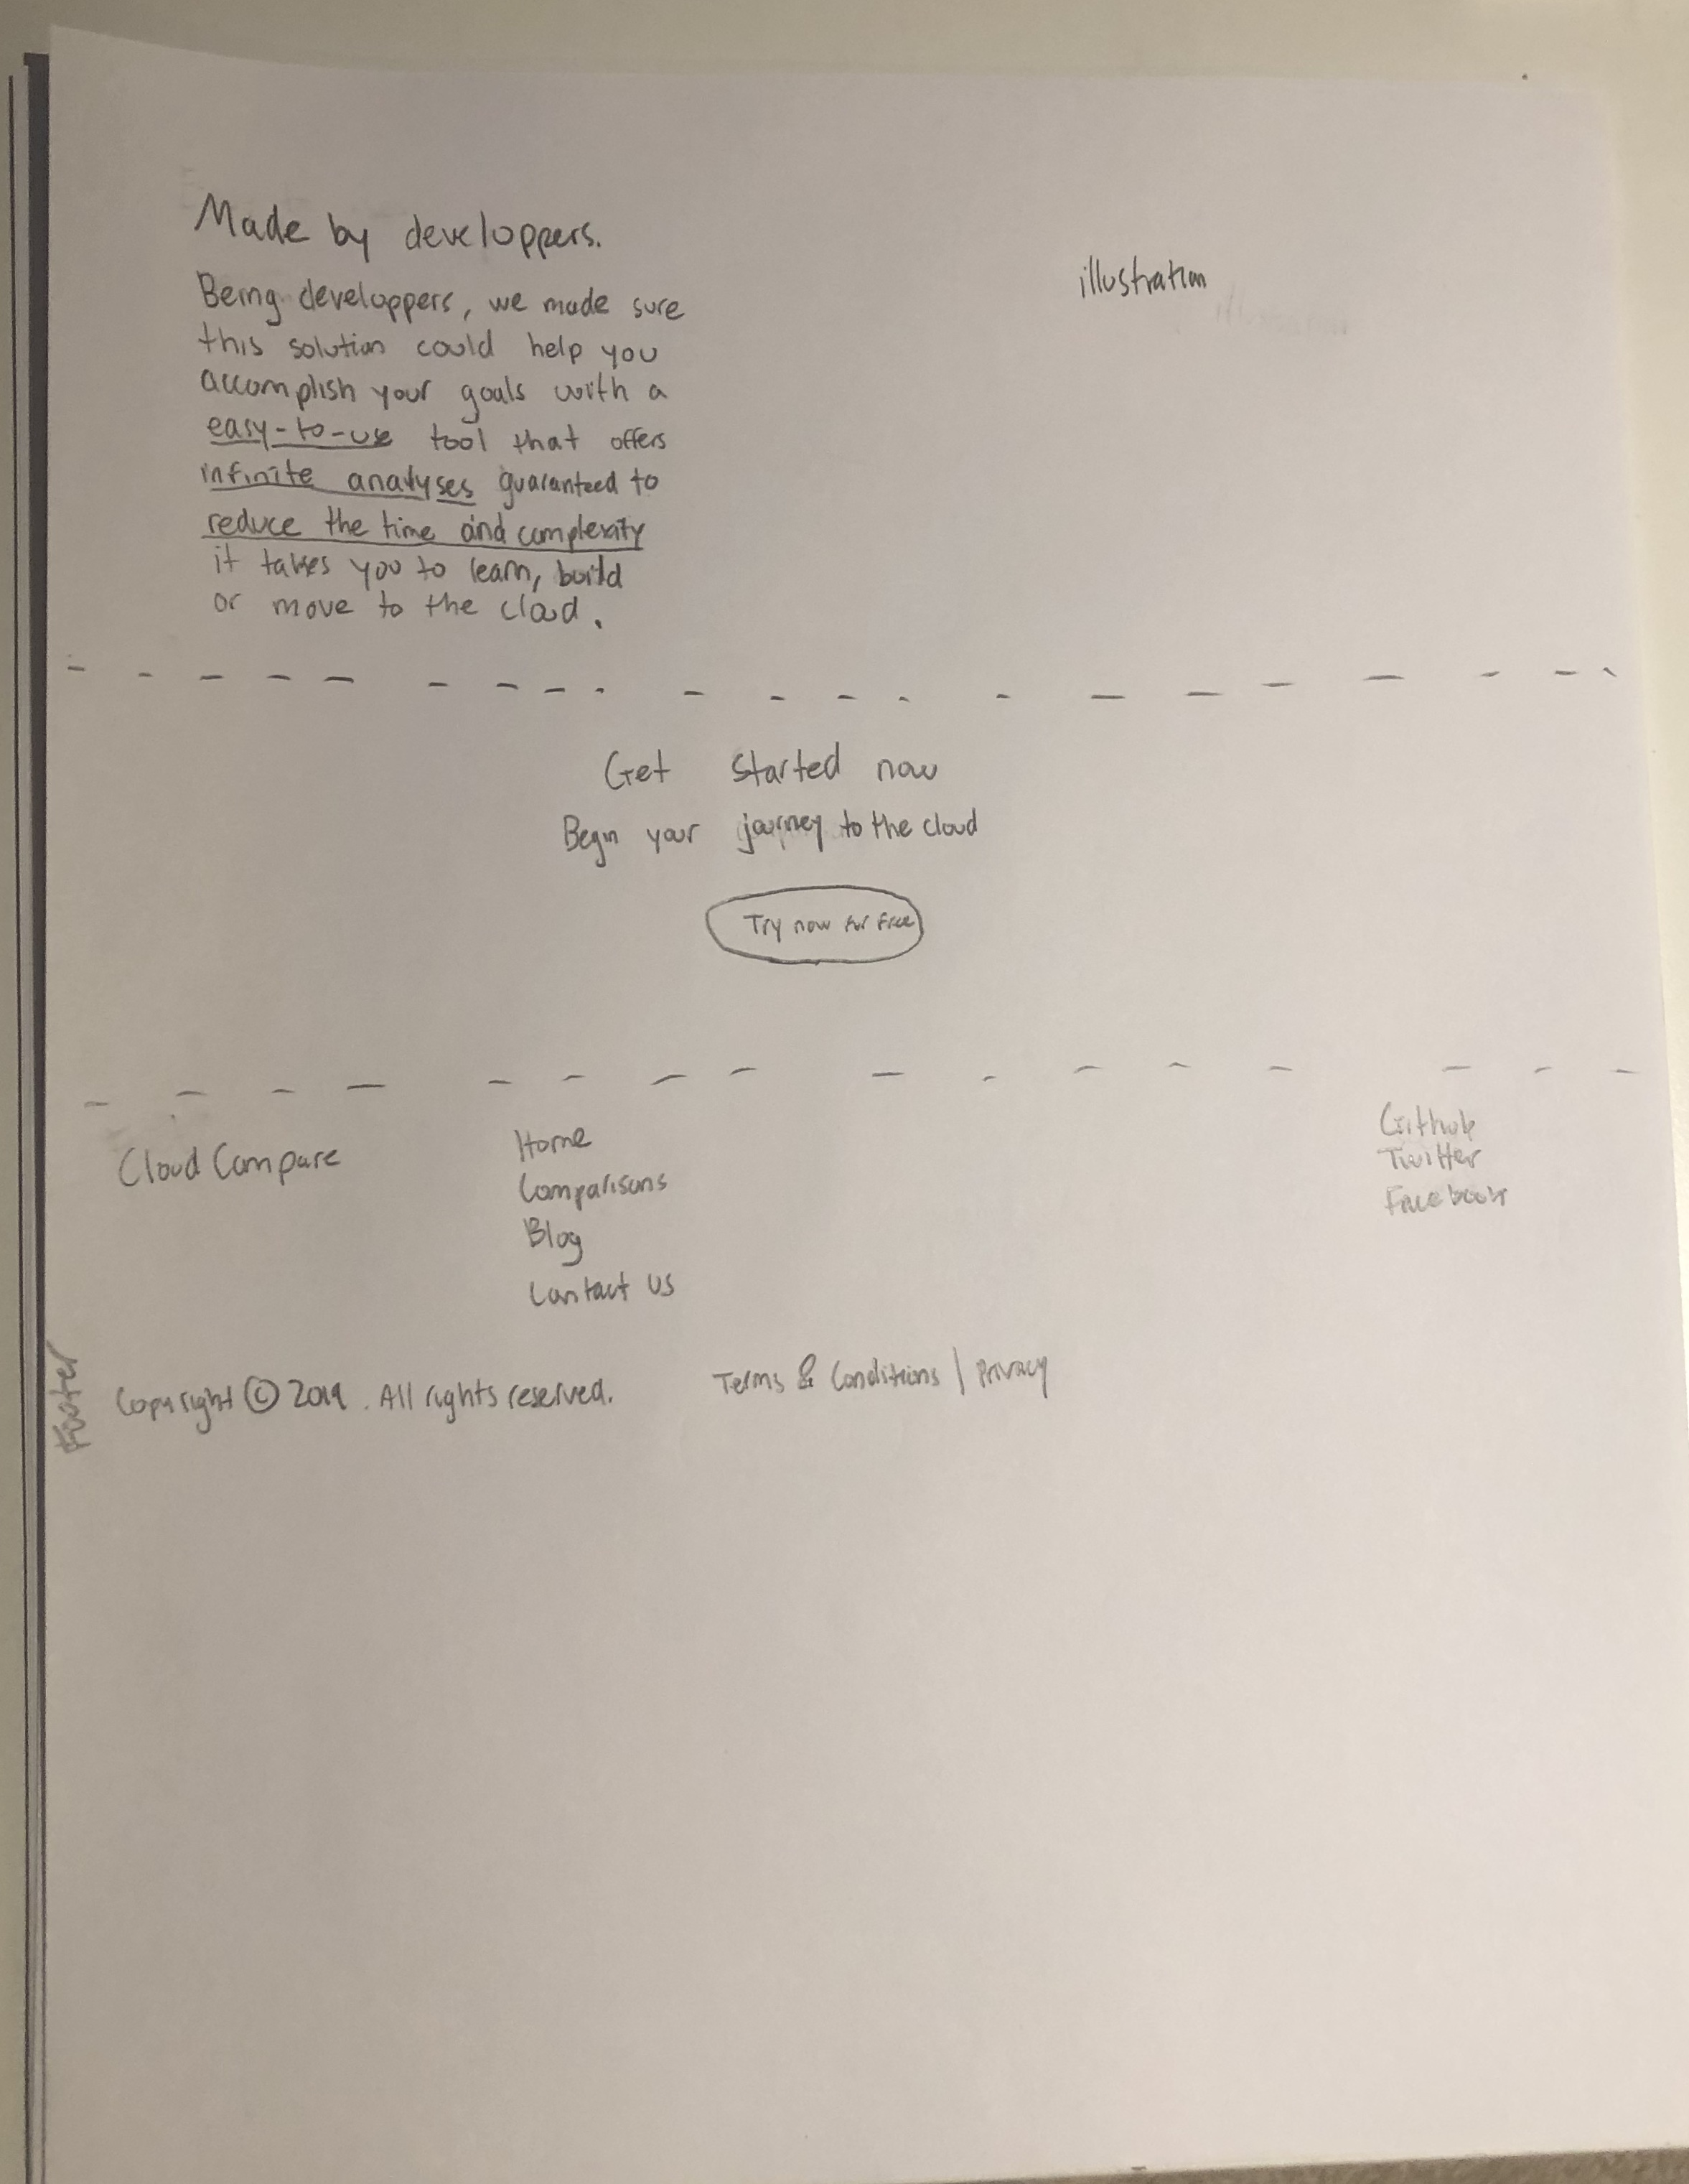 Made by developpers.
illustration
Being developpers, we made sure
this solution could help you
accomplish your goals with a
easy-to-use tool that offers
infinite analyses guaranteed to
reduce the time and complexity
it takes you to learn, build
or move to the cloud.
Get started now
Begin your journey to the cloud
Try now for free
Cloud Compare
Home
Comparisons
Blog
Contact us
Github
Twitter
Facebook
Footer
Copyright © 2019. All rights reserved.
Terms & Conditions | Privacy